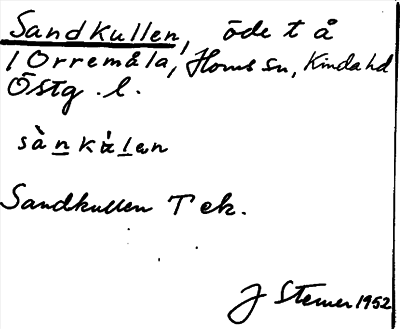 Sandkullen, öde t å
1 Orremåla, Horns sn, Kinda hd
Östg. l.
sànkálan
Sandkullen T ek.
J Sterner 1952